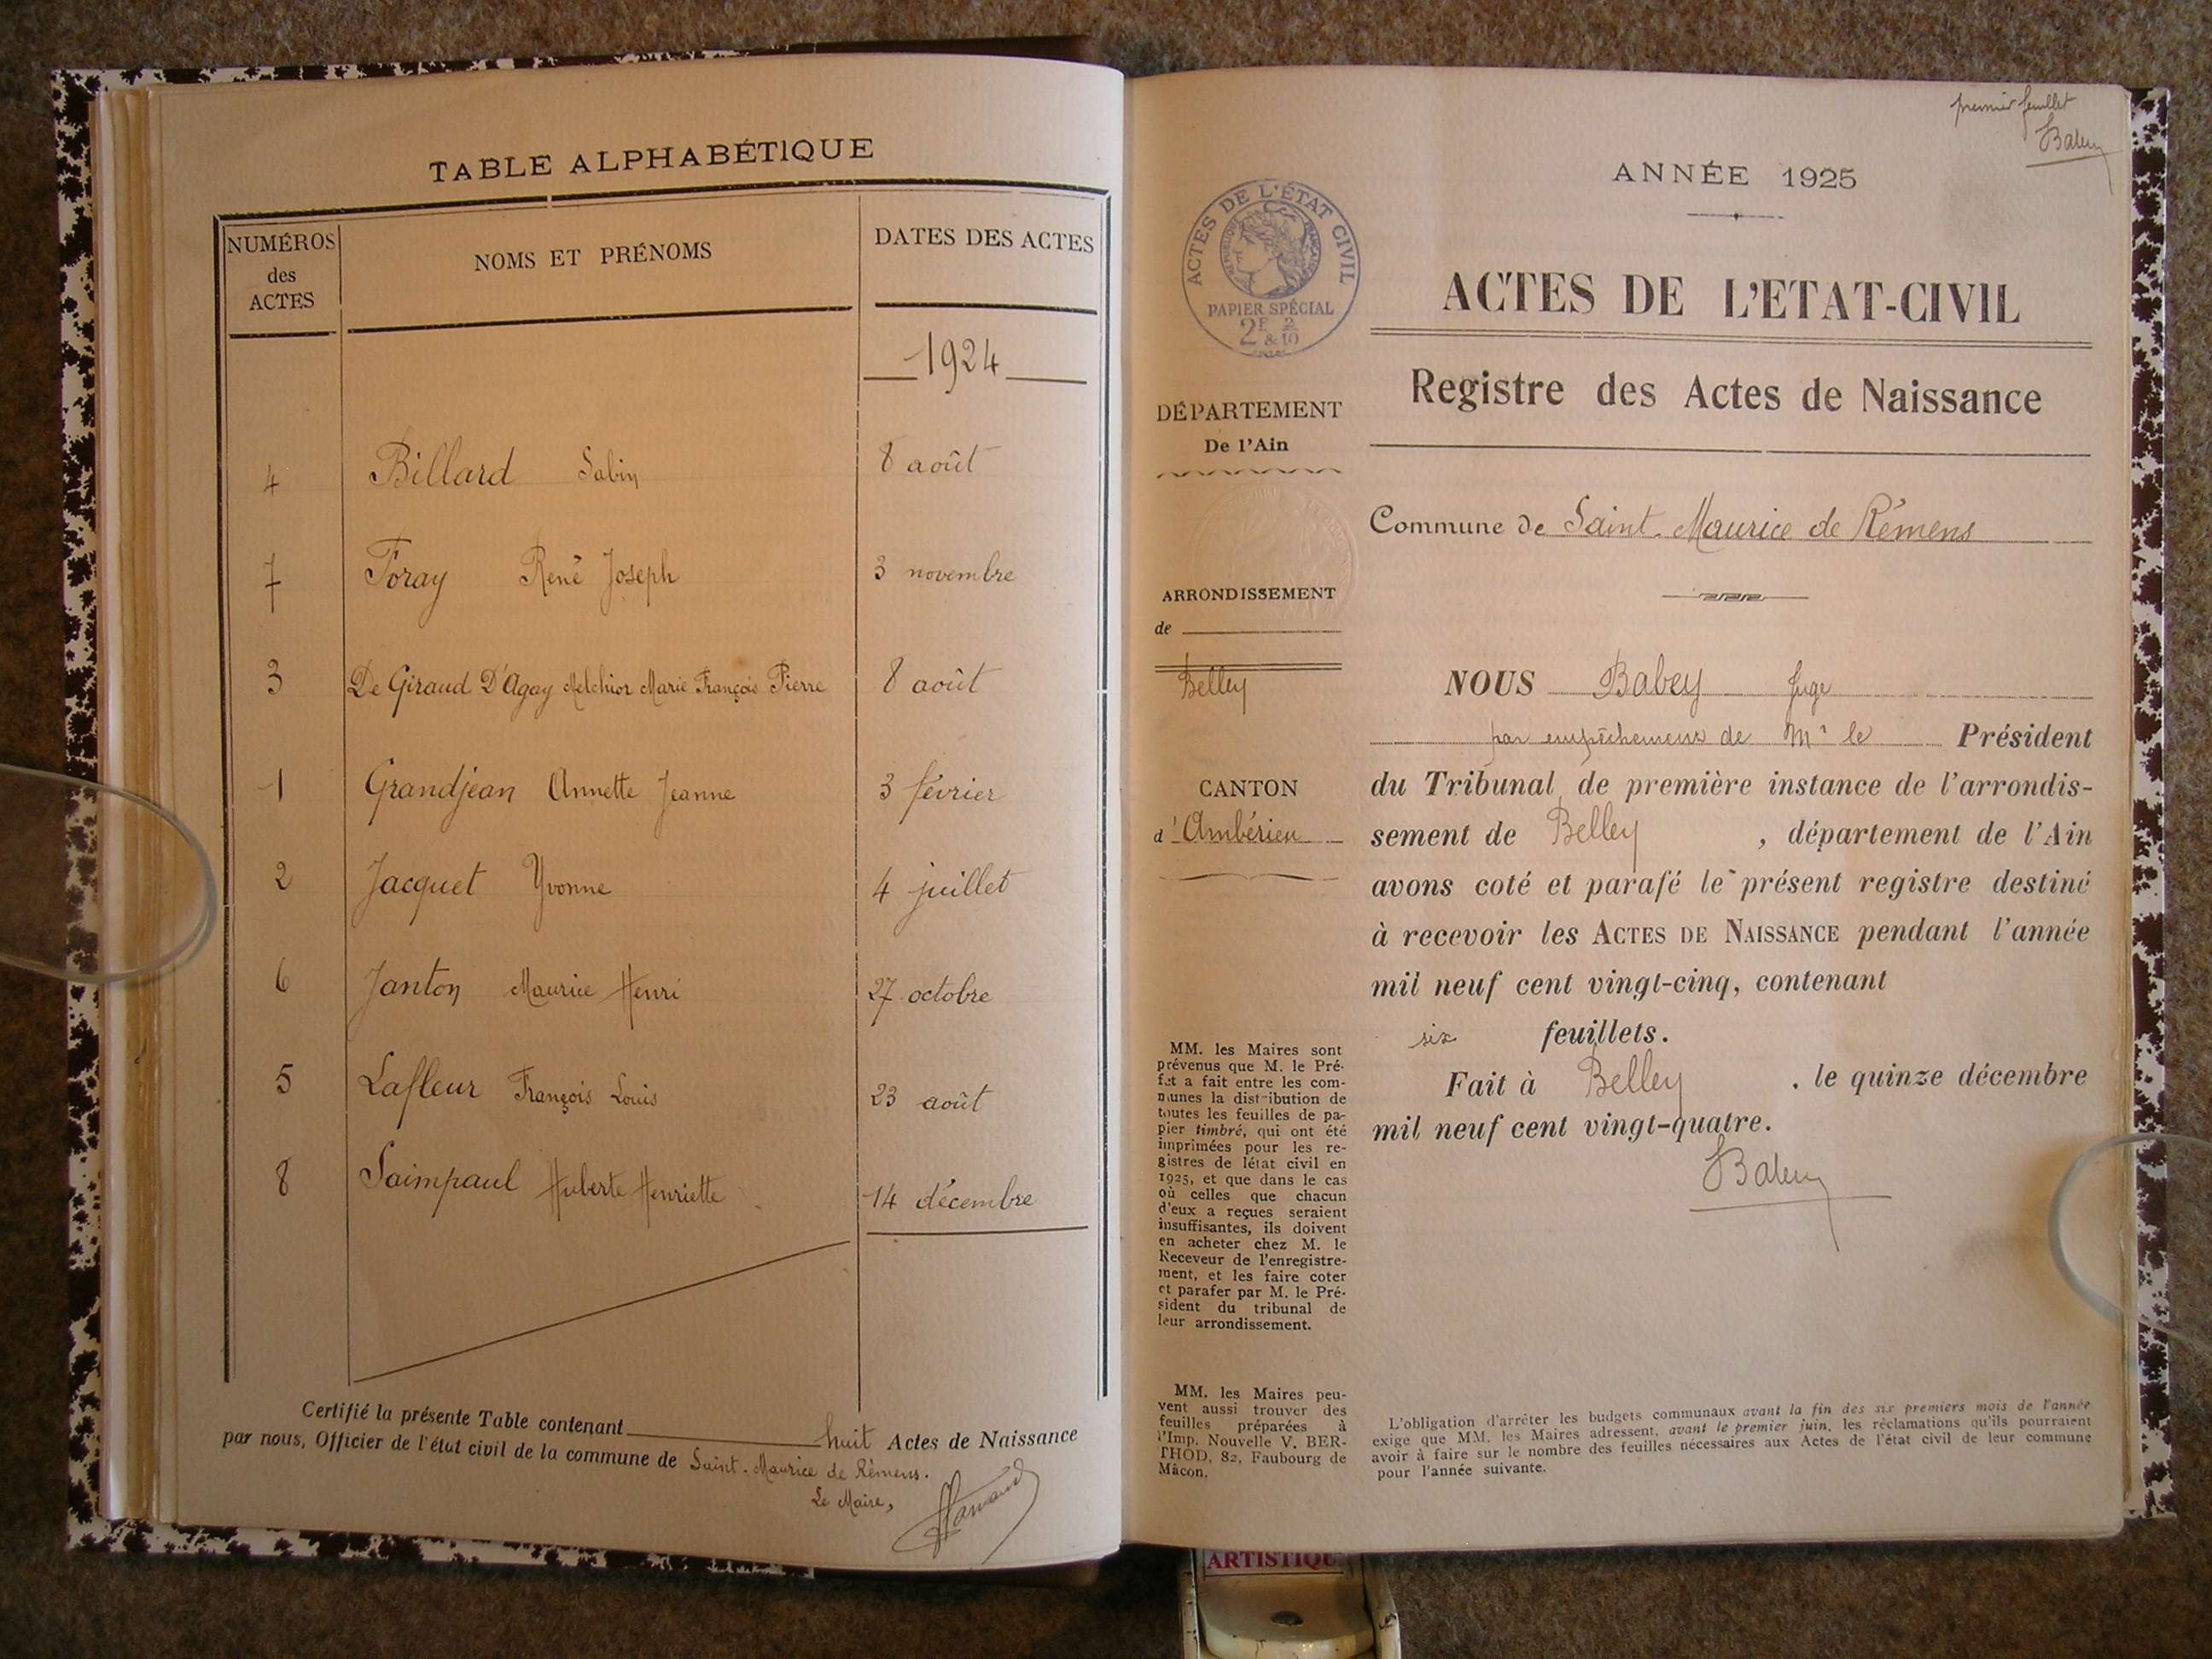 TABLE ALPHABÉTIQUE
NUMÉROS
des
ACTES
NOMS ET PRÉNOMS
DATES DES ACTES
1924
4 Billard Sabin 8 août
7 Foray René Joseph 3 novembre
3 De Giraud D'Agay Melchior Marie François Pierre 8 août
1 Grandjean Annette Jeanne 3 février
2 Jacquet Yvonne 4 juillet
6 Janton Maurice Henri 27 octobre
5 Lafleur François Louis 23 août
8 Saimpaul Huberte Henriette 14 décembre
Certifié la présente Table contenant huit Actes de Naissance
par nous, Officier de l'état civil de la commune de Saint-Maurice de Rémens.
Le Maire,
premier feuillet
ANNÉE 1925
ACTES DE L'ÉTAT CIVIL
RÉPUBLIQUE FRANÇAISE
PAPIER SPÉCIAL
2F & 2/10
ACTES DE L'ETAT-CIVIL
Registre des Actes de Naissance
DÉPARTEMENT
De l'Ain
Commune de Saint-Maurice de Rémens
ARRONDISSEMENT
de
Belley
CANTON
d'Ambérieu
NOUS Babey Juge
par empêchement de Mr le Président
du Tribunal de première instance de l'arrondis-
sement de Belley, département de l'Ain
avons coté et parafé le présent registre destiné
à recevoir les ACTES DE NAISSANCE pendant l'année
mil neuf cent vingt-cinq, contenant
six feuillets.
Fait à Belley, le quinze décembre
mil neuf cent vingt-quatre.
MM. les Maires sont
prévenus que M. le Pré-
fet a fait entre les com-
munes la distribution de
toutes les feuilles de pa-
pier timbré, qui ont été
imprimées pour les re-
gistres de létat civil en
1925, et que dans le cas
où celles que chacun
d'eux a reçues seraient
insuffisantes, ils doivent
en acheter chez M. le
Receveur de l'enregistre-
ment, et les faire coter
et parafer par M. le Pré-
sident du tribunal de
leur arrondissement.
MM. les Maires peu-
vent aussi trouver des
feuilles préparées à
l'Imp. Nouvelle V. BER-
THOD, 82, Faubourg de
Mâcon.
L'obligation d'arrêter les budgets communaux avant la fin des six premiers mois de l'année
exige que MM. les Maires adressent, avant le premier juin, les réclamations qu'ils pourraient
avoir à faire sur le nombre des feuilles nécessaires aux Actes de l'état civil de leur commune
pour l'année suivante.
ARTISTIQU